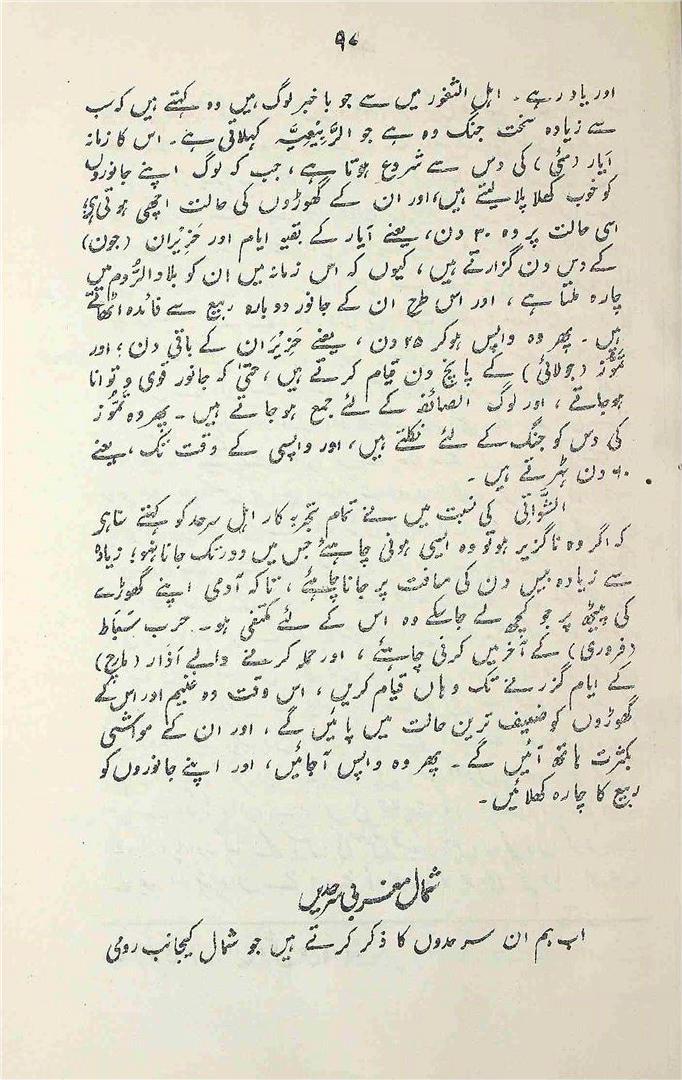 ۹۸
اور یاد رہے۔ اہل الثغور میں سے جو باخبر لوگ ہیں وہ کہتے ہیں کہ سب
سے زیادہ سخت جنگ وہ ہے جو الرَّبِیعِیَّہ کہلاتی ہے۔ اس کا زمانہ
اَیار (مئی) کی دس سے شروع ہوتا ہے، جب کہ لوگ اپنے جانوروں
کو خوب کھلا پلا لیتے ہیں، اور ان کے گھوڑوں کی حالت اچھی ہوتی ہے؛
اسی حالت پر وہ ۳۰ دن، یعنے اَیار کے بقیہ ایام اور حَزِیران (جون)
کے دس دن گزارتے ہیں، کیوں کہ اس زمانہ میں ان کو بلاد الرُّوم میں
چارہ ملتا ہے، اور اس طرح ان کے جانور دوبارہ ربیع سے فائدہ اٹھاتے
ہیں۔ پھر وہ واپس ہوکر ۲۵ دن، یعنے حَزِیْرَان کے باقی دن؛ اور
تمُّوز (جولائی) کے پانچ دن قیام کرتے ہیں، حتیٰ کہ جانور قوی و توانا
ہوجاتے، اور لوگ الصائفہ کے لئے جمع ہوجاتے ہیں۔ پھر وہ تمُّوز
کی دس کو جنگ کے لئے نکلتے ہیں، اور واپسی کے وقت تک، یعنے
۶۰ دن ٹہرتے ہیں۔
الشَّواتی کی نسبت میں نے تمام تجربہ کار اہل سرحد کو کہتے سنا ہے
کہ اگر وہ ناگزیر ہو تو وہ ایسی ہونی چاہئے جس میں دور تک جانا نہو؛ زیادہ
سے زیادہ بیس دن کی مسافت پر جانا چاہئے، تاکہ آدمی اپنے گھوڑے
کی پیٹھ پر جو کچھ لے جاسکے وہ اس کے لئے مکتفی ہو۔ حرب سَبَاط
(فروری) کے آخر میں کرنی چاہئے، اور حملہ کرنے والے آذار (مارچ)
کے ایام گزرنے تک وہاں قیام کریں، اس وقت وہ غنیم اور اس کے
گھوڑوں کو ضعیف ترین حالت میں پائیں گے، اور ان کے مواشی
بکثرت ہاتھ آئیں گے۔ پھر وہ واپس آجائیں، اور اپنے جانوروں کو
ربیع کا چارہ کھلائیں۔
شمال مغربی سرحدیں
اب ہم ان سرحدوں کا ذکر کرتے ہیں جو شمال کیجانب رومی